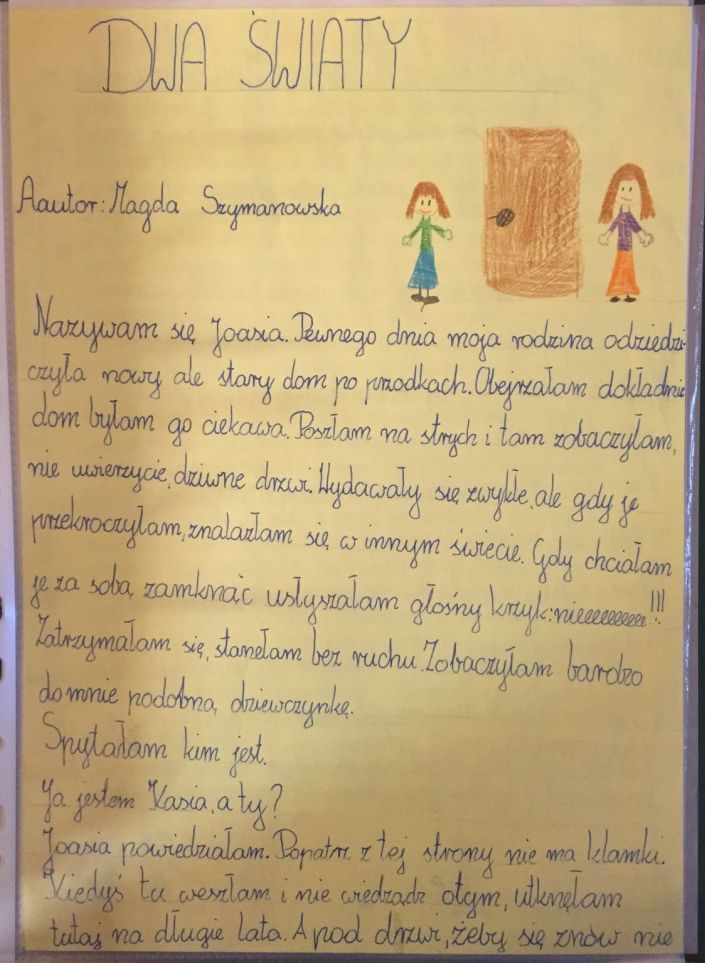 DWA ŚWIATY
Aautor: Magda Szymanowska
Nazywam się Joasia. Pewnego dnia moja rodzina odziedzi-
czyła nowy ale stary dom po przodkach. Obejrzałam dokładnie
dom byłam go ciekawa. Poszłam na strych i tam zobaczyłam,
nie uwierzycie, dziwne drzwi. Wydawały się zwykłe, ale gdy je
przekroczyłam, znalazłam się w innym świecie. Gdy chciałam
je za sobą zamknąć usłyszałam głośny krzyk: nieeeeeeeeee!!!
Zatrzymałam się, stanełam bez ruchu. Zobaczyłam bardzo
do mnie podobną dziewczynkę.
Spytałam kim jest.
Ja jestem Kasia, a ty?
Joasia powiedziałam. Popatrz z tej strony nie ma klamki.
Kiedyś tu weszłam i nie wiedząc otym, utknęłam
tutaj na długie lata. A pod drzwi, żeby się znów nie